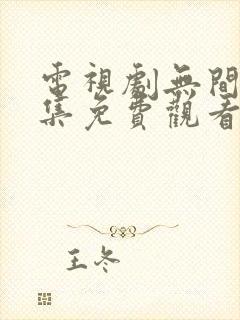 電視劇無間
集免費觀看
王冬